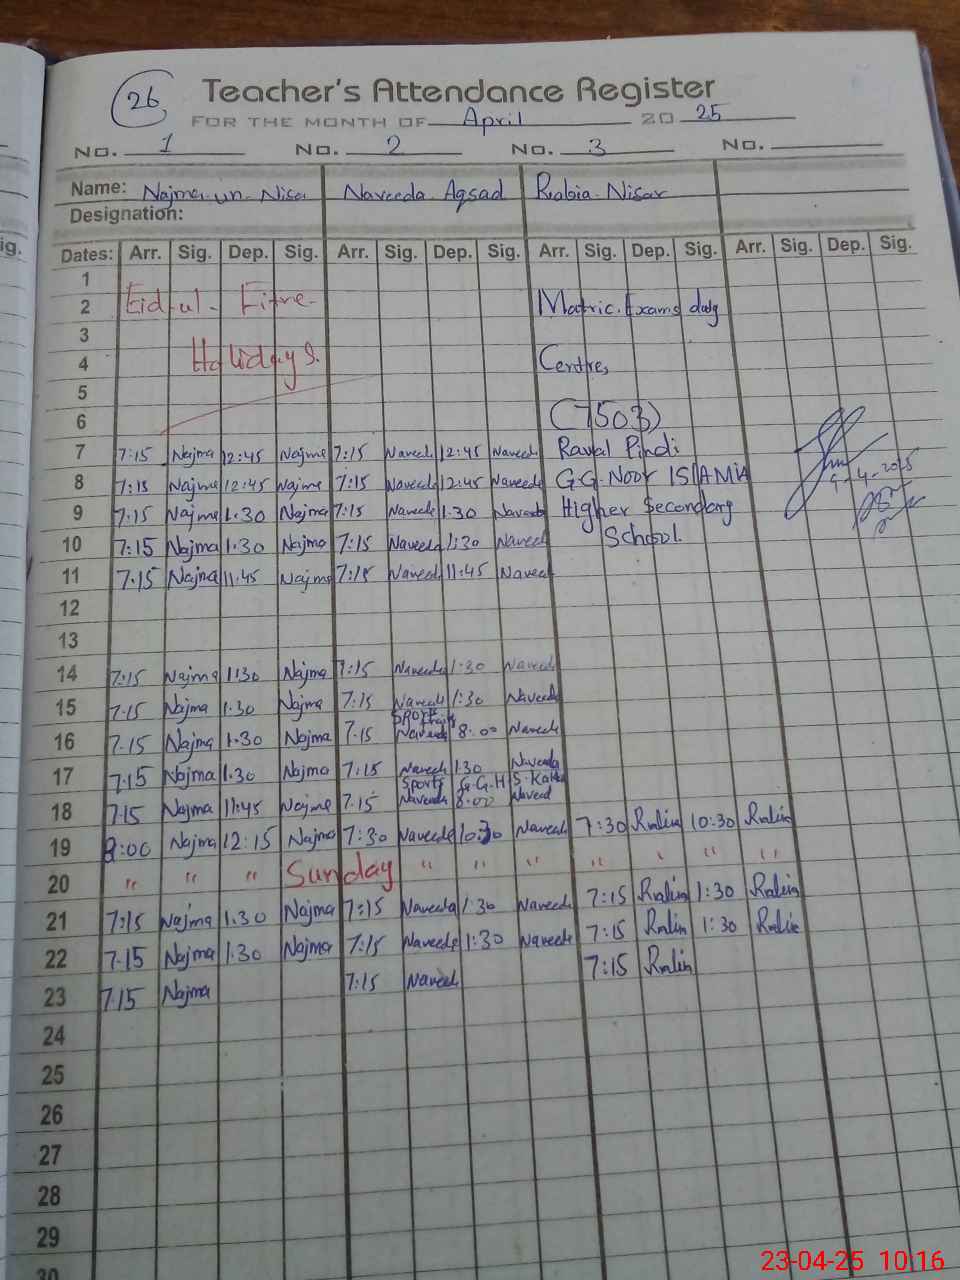 26
Teacher's Attendance Register
FOR THE MONTH OF April 2025
No. 1 No. 2 No. 3 No.
Name: Najma-un-Nisa Naveeda Aqsad Rabia Nisar
Designation:
ig.
Dates: Arr. Sig. Dep. Sig. Arr. Sig. Dep. Sig. Arr. Sig. Dep. Sig. Arr. Sig. Dep. Sig.
1
2 Eid-ul-Fitre- Matric. Exams duty
3
4 Holidays. Centre,
5
6 (7503)
7 7:15 Najma 12:45 Najma 7:15 Naveed 12:45 Naveed Rawal Pindi
8 7:15 Najma 12:45 Najma 7:15 Naveeda 12:45 Naveeda G.G. Noor ISlAMIA 9-4-2025
9 7:15 Najma 1.30 Najma 7:15 Naveed 1:30 Naveeda Higher Secondary
10 7:15 Najma 1.30 Najma 7:15 Naveeda 1:30 Naveed School.
11 7.15 Najma 11:45 Najma 7:15 Naveed 11:45 Naveed
12
13
14 7:15 Najma 1:30 Najma 7:15 Naveeda 1:30 Naveed
15 7.15 Najma 1.30 Najma 7:15 Naveeda 1:30 Naveeda
Sports
16 7.15 Najma 1.30 Najma 7.15 Naveeda 8:00 Naveeda
17 7:15 Najma 1.30 Najma 7:15 Naveeda 1:30 Naveeda
Sports G.G.H.S.
18 7:15 Najma 11:45 Najma 7.15 Naveeda 8:00 Naveed
19 8:00 Najma 12:15 Najma 7:30 Naveeda 10:30 Naveed 7:30 Rabia 10:30 Rabia
20 " " " Sunday " " " " " " "
21 7:15 Najma 1.30 Najma 7:15 Naveeda 1:30 Naveeda 7:15 Rabia 1:30 Rabia
22 7.15 Najma 1.30 Najma 7:15 Naveeda 1:30 Naveeda 7:15 Rabia 1:30 Rabia
23 7.15 Najma 7:15 Naveed 7:15 Rabia
24
25
26
27
28
29
30
23-04-25 10:16